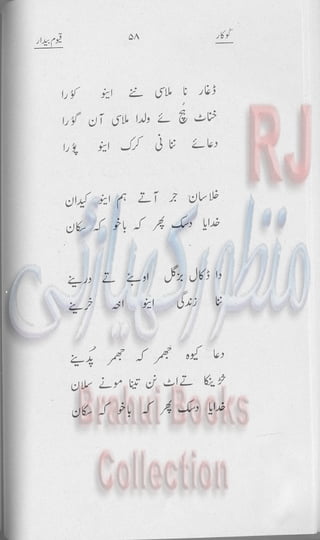 لوکار ۵۸ قیوم بیدار
ڈغار نا ملاسی نئے اینو کؤرا
خناٹ ہُچ ئے ولدا ملاسی آن گؤرا
دعائے ننا نی کرک اینو پؤرا
خلاسان جر آتے ہم اینو کیدان
خدایا دسک پھر کہ باخو کہ سکان
دا ڈکال بزگل اوہئے تے درینے
ننا زندگی اینو اخہ خرینے
دعا کیوہ جھمر کہ جھمر پُدینے
تے اٹ نن تینا مونے سلان
خدایا دسک پھر کہ باخو کہ سکان
RJ
منظور کہیازئی
Brahui Books
Collection